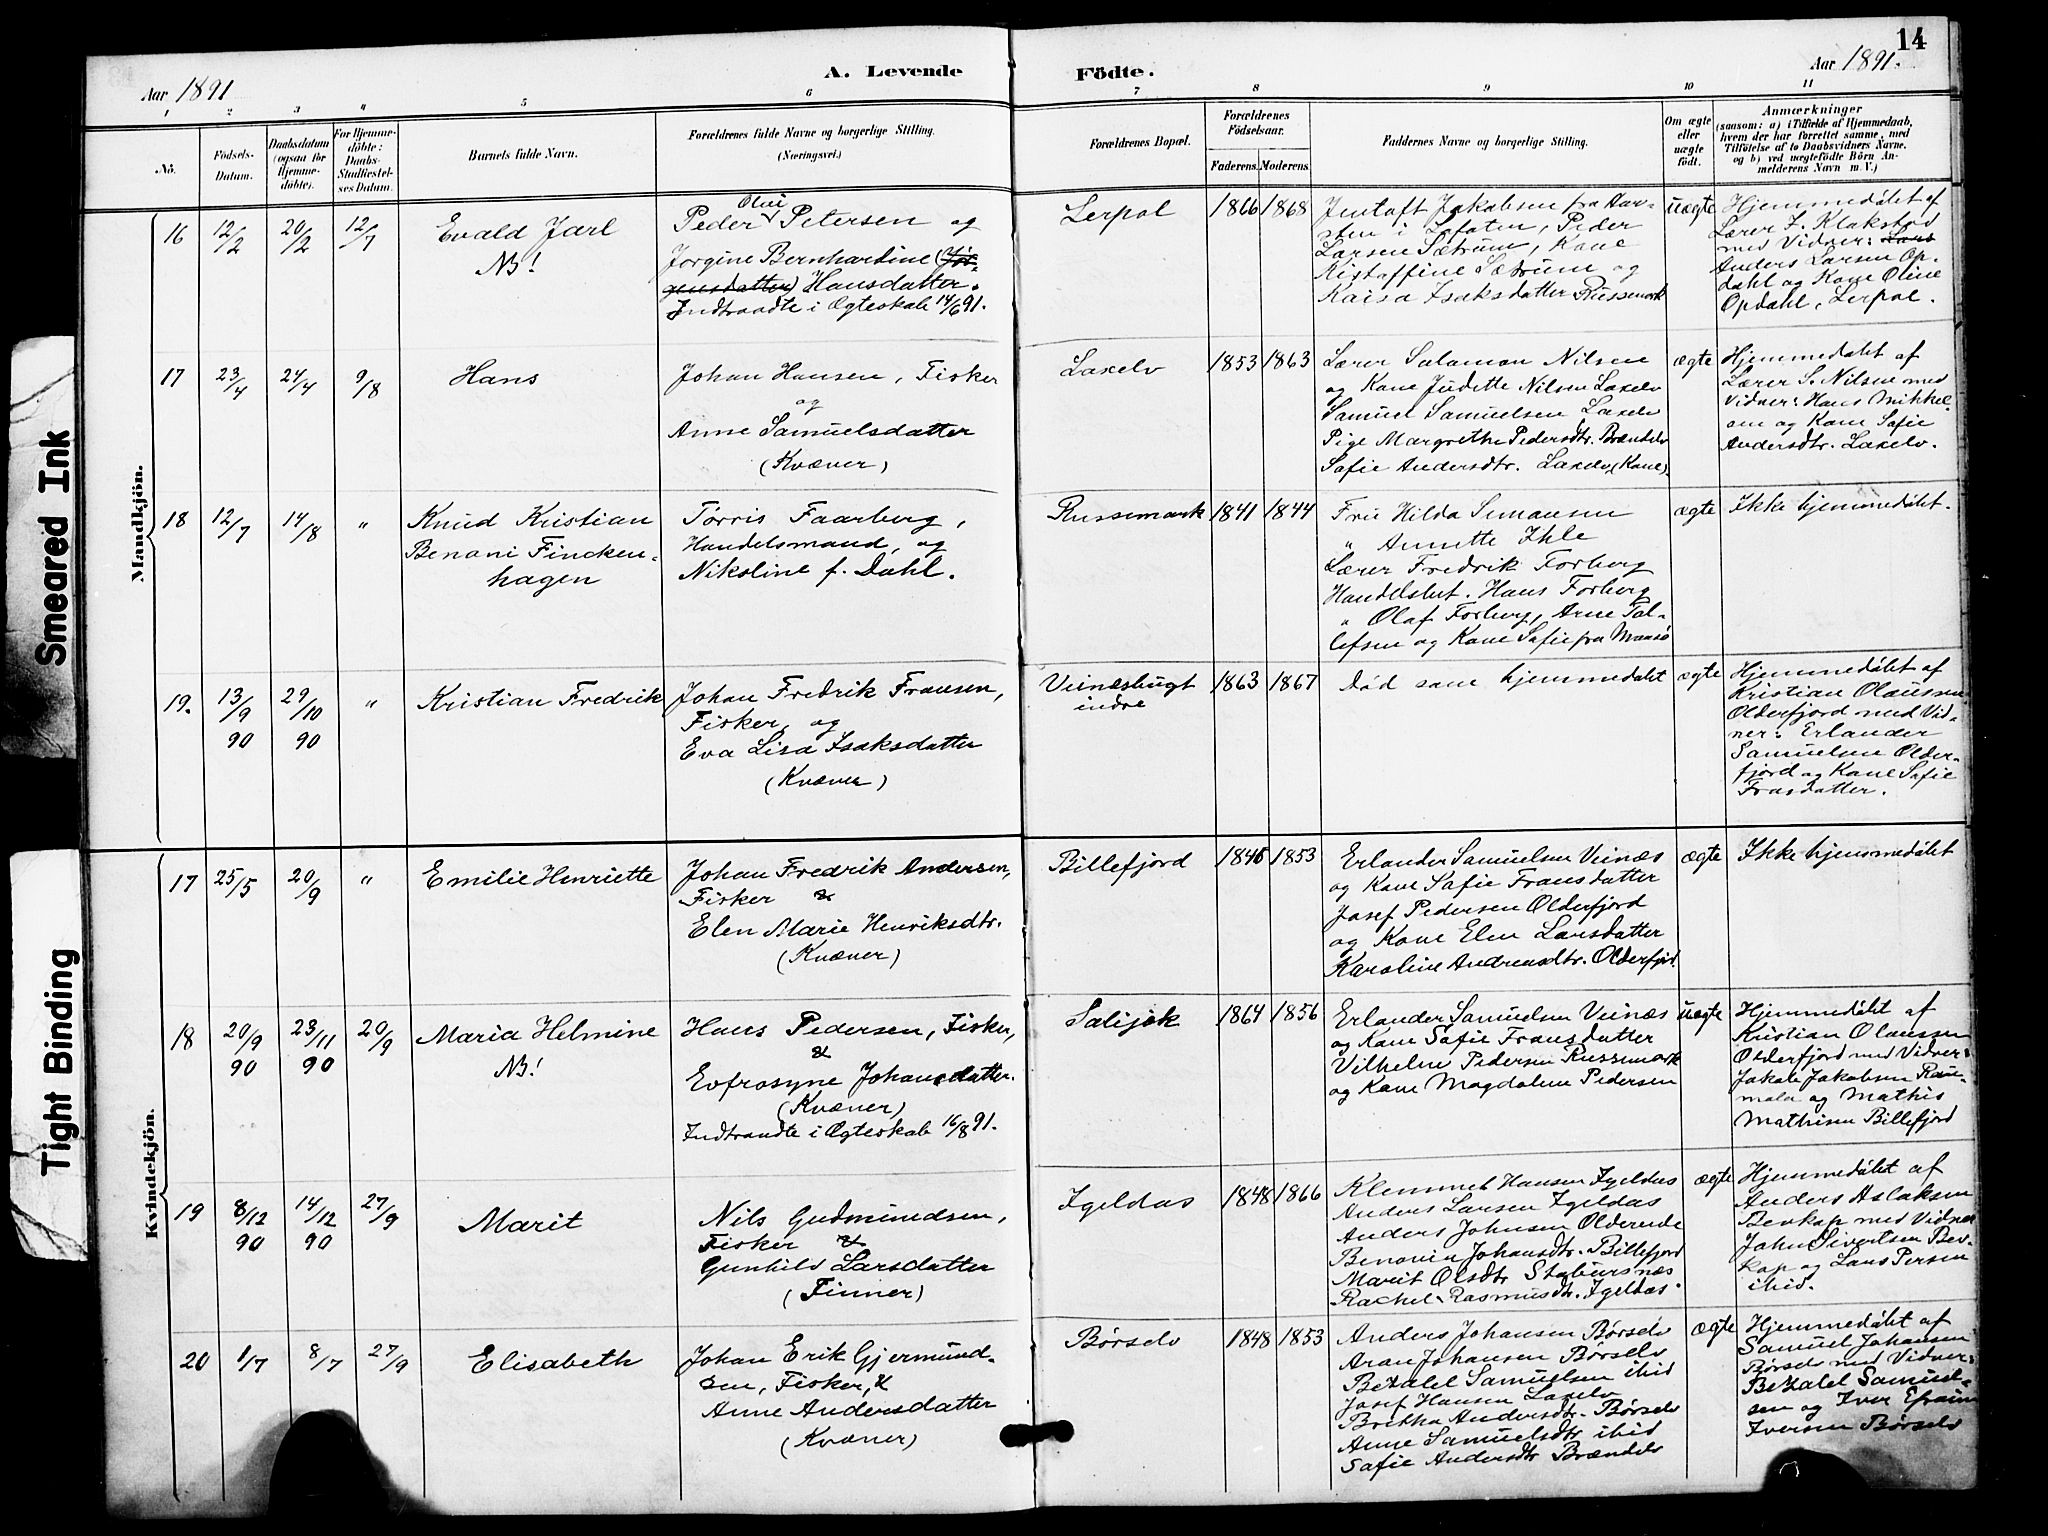 14
A. Levende Födte.
Aar 1891
Aar 1891.
1 2 3 4 5 6 7 8 9 10 11
No.
Födsels-
Datum.
Daabsdatum
(ogsaa for
Hjemme-
döbte).
For Hjemme-
döbte:
Daabs-
Stadfæstel-
ses Datum.
Barnets fulde Navn.
Forældrenes fulde Navne og borgerlige Stilling.
(Næringsvei.)
Forældrenes Bopæl.
Forældrenes
Födselsaar.
Faderens. Moderens.
Faddernes Navne og borgerlige Stilling.
Om ægte
eller
uægte
födt.
Anmærkninger
(saasom: a) i Tilfælde af Hjemmedaab,
hvem der har forrettet samme, med
Tilföielse af to Daabsvidners Navne,
og b) ved uægtefödte Börn An-
melderens Navn m. V.)
Mandkjön.
16
12/2
20/2
12/7
Evald Jarl
NB!
Olai
Peder Petersen og
Jorgine Bernhardine (Jör-
gensdatter) Hansdatter.
Indtraadte i Ægteskab 14/6 91.
Lerpol
1866 1868
Jakobsen fra
i Lofoten, Peder
Larsen Sætrum, Kone
Kistaffine Sætrum og
Kaisa Isaksdatter Russemark
uægte
Hjemmedøbt af
Lærer J. Klakstad
med Vidner: Lars
Anders Larsen Op-
dahl og Kone Oline
Opdahl, Lerpol.
17
23/4
24/4
9/18
Hans
Johan Hansen, Fisker
og
Anne Samuelsdatter
(Kvæner)
Laxelv
1853 1863
Lærer Salamon Nilsen
og Kone Judette Nilsen Laxelv
Samuel Samuelsen Laxelv
Pige Margrethe Pedersdtr. Brændelv
Safie Andersdtr. Laxelv (Kone).
ægte
Hjemmedøbt af
Lærer S. Nilsen med
Vidner: Hans Mikkel-
sen og Kone Safie
Andersdtr. Laxelv.
18
12/7
14/8
"
Knud Kristian
Benoni Fincken-
hagen
Tørris Faarberg,
Handelsmand, og
Nikoline f. Dahl.
Russemark
1841 1844
Fru Hilda Simonsen
" Annette Ihle
Lærer Fredrik Forberg
Handelsbet. Hans Forberg
" Olaf Forberg, Arne Tol-
lefsen og Kone Safie fra Maasø
ægte
Ikke hjemmedøbt.
19.
13/9
90
29/10
90
"
Kristian Fredrik
Johan Fredrik Fransen,
Fisker, og
Eva Lisa Isaksdatter
(Kvæner)
Veinesbugt
indre
1863 1867
Død som hjemmedøbt
ægte
Hjemmedøbt af
Kristian Olaussen
Olderfjord med Vid-
ner: Erlander
Samuelsen Older-
fjord og Kone Safie
Fransdatter.
Kvindekjön.
17
25/5
20/9
"
Emilie Henriette
Johan Fredrik Andersen,
Fisker &
Elen Marie Henriksdtr.
(Kvæner)
Billefjord
1846 1853
Erlander Samuelsen Veinæs
og Kone Safie Fransdatter
Josef Pedersen Olderfjord
og Kone Elen Larsdatter
Karoline Andreasdtr. Olderfjord.
ægte
Ikke hjemmedøbt
18
20/9
90
23/11
90
20/9
Maria Helmine
NB!
Hans Pedersen, Fisker,
&
Evfrosyne Johansdatter.
(Kvæner)
Indtraadte i Ægteskab 16/8 91.
Salijok
1864 1856
Erlander Samuelsen Veinæs
og Kone Safie Fransdatter
Vilhelm Pedersen Russemark
og Kone Magdalena Pedersen
uægte
Hjemmedøbt af
Kristian Olaussen
Olderfjord med Vidner:
Jakob Jakobsen
og Mathis
Mathisen Billefjord
19
8/12
90
14/12
90
27/9
Marit
Nils Gudmundsen,
Fisker &
Gunhild Larsdatter
(Finner)
Igeldas
1848 1866
Klemmet Hansen Igeldas
Anders Larsen Igeldas
Anders Johnsen Olderende
Benovin Johansdtr. Billefjord
Marit Olsdtr Stabursnæs
Rachel Rasmusdtr. Igeldas.
ægte
Hjemmedøbt af
Anders Aslaksen
Bevkop med Vidner
John Sivertsen Bev-
kop og Lars Persen
ibid.
20
1/7
8/7
27/9
Elisabeth
Johan Erik Gjermund-
sen, Fisker, &
Anne Andersdatter
(Kvæner)
Børselv
1848 1853
Anders Johansen Børselv
Aron Johansen Børselv
Bezalel Samuelsen ibid
Josef Hansen Laxelv
Brikha Andersdtr. Børselv
Anne Samuelsdtr ibid
Safie Andersdtr Brændelv
ægte
Hjemmedøbt af
Samuel Johansen
Børselv med Vidner:
Bezalel Samuel-
sen og Iver Efraim
Iversen Børselv
Smeared Ink
Tight Binding